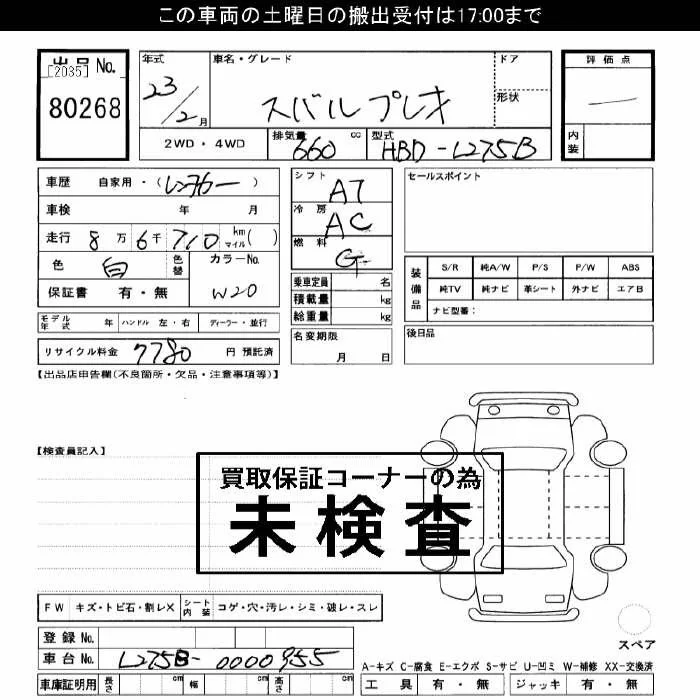 この車両の土曜日の搬出受付は17:00まで
出品 No.
[2035]
80268
年式
23/2月
車名・グレード
スバルプレオ
ドア
形状
評価点
内装
2WD・4WD
排気量 660 cc
型式 HBD-L275B
車歴 自家用・(レンタカー)
車検 年 月
走行 8万6千710 km マイル( )
色 白 色替 カラーNo.
W20
保証書 有・無
シフト AT
冷房 AC
燃料 G
乗車定員 名
積載量 kg
総重量 kg
名変期限
月 日
セールスポイント
装備品
S/R 純A/W P/S P/W ABS
純TV 純ナビ 革シート 外ナビ エアB
ナビ型番:
後日品
モデル年式 年 ハンドル 左・右 ディーラー・並行
リサイクル料金 7780 円 預託済
【出品店申告欄(不良箇所・欠品・注意事項等)】
【検査員記入】
買取保証コーナーの為
未検査
FW キズ・トビ石・割レX シート内装 コゲ・穴・汚レ・シミ・破レ・スレ
登録 No.
車台 No. L275B-0000955
車庫証明用 長さ cm 幅 cm 高さ cm
スペア
A-キズ C-腐食 E-エクボ S-サビ U-凹ミ W-補修 XX-交換済
工具 有・無 ジャッキ 有・無